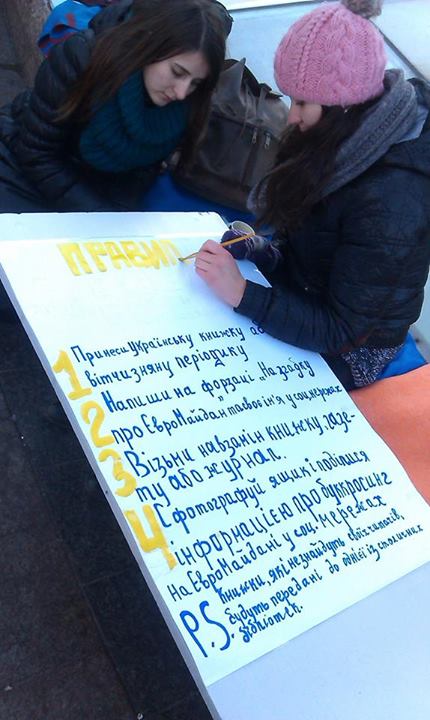 ПРАВИЛ
1 Принеси українську книжку або
вітчизняну періодику
2 Напиши на форзаці „На згадку
про ЄвроМайдан та своє ім'я у соц мережах
3 Візьми навзамін книжку, газе-
ту або журнал.
4 Сфотографуй ящик і поділися
інформацією про буккросинг
на ЄвроМайдані у соц. мережах
P.S. Книжки, які не знайдуть своїх читачів,
будуть передані до однієї із столичних
бібліотек.